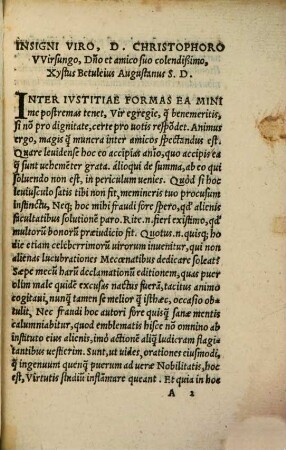 INSIGNI VIRO, D. CHRISTOPHORO
VVirsungo, Dño et amico suo colendißimo,
Xystus Betuleius Augustanus S. D.
INTER IVSTITIAE FORMAS EA MINI
me postremas tenet, Vir egregie, q̃ benemeritis,
si nõ pro dignitate, certe pro uotis respõdet. Animus
ergo, magis q̃ munera inter amicos spectandus est.
Quare leuidense hoc eo accipias aĩo, quo accipis ea
q̃ sunt uehemẽter grata. alioqui de summa, ab eo qui
soluendo non est, in periculum uenies. Quod si hoc
leuiusculo satis tibi non fit, memineris tuo procusum
instinctu, Neq; hoc mihi fraudi fore spero, qd' alienis
facultatibus solutionẽ paro. Rite.n.fieri existimo, qd'
multorũ bonorũ præiudicio fit. Quotus.n.quisq; ho
die etiam celeberrimorũ uirorum inuenitur, qui non
alienas lucubrationes Mecœnatibus dedicare soleat?
Sæpe mecũ harũ declamationũ editionem, quas puer
olim male quidẽ excusas nactus fuerã, tacitus animo
cogitaui, nunq̃ tamen se melior q̃ isthæc, occasio ob-
tulit, Nec fraudi hoc autori fore quisq̃ sanæ mentis
calumniabitur, quod emblematis hisce nõ omnino ab
instituto eius alienis, imò actionẽ aliq̃ laudiram flagi-
tantibus uestierim. Sunt, ut uides, orationes eiusmodi,
q̃ ingenuum quenq̃ puerum ad ueræ Nobilitatis, hoc
est, Virtutis studiũ inflãmare queant. Et quia in hoc
A 2